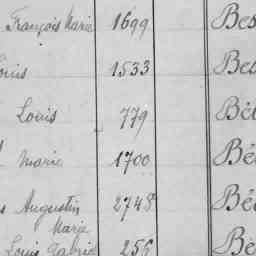 François Marie 1699 Bes
Louis 1533 Bet
Louis 779 Bét
Marie 1700 Bé
Augustin 2748 Bé
Marie
Louis Gabrie 256 Be